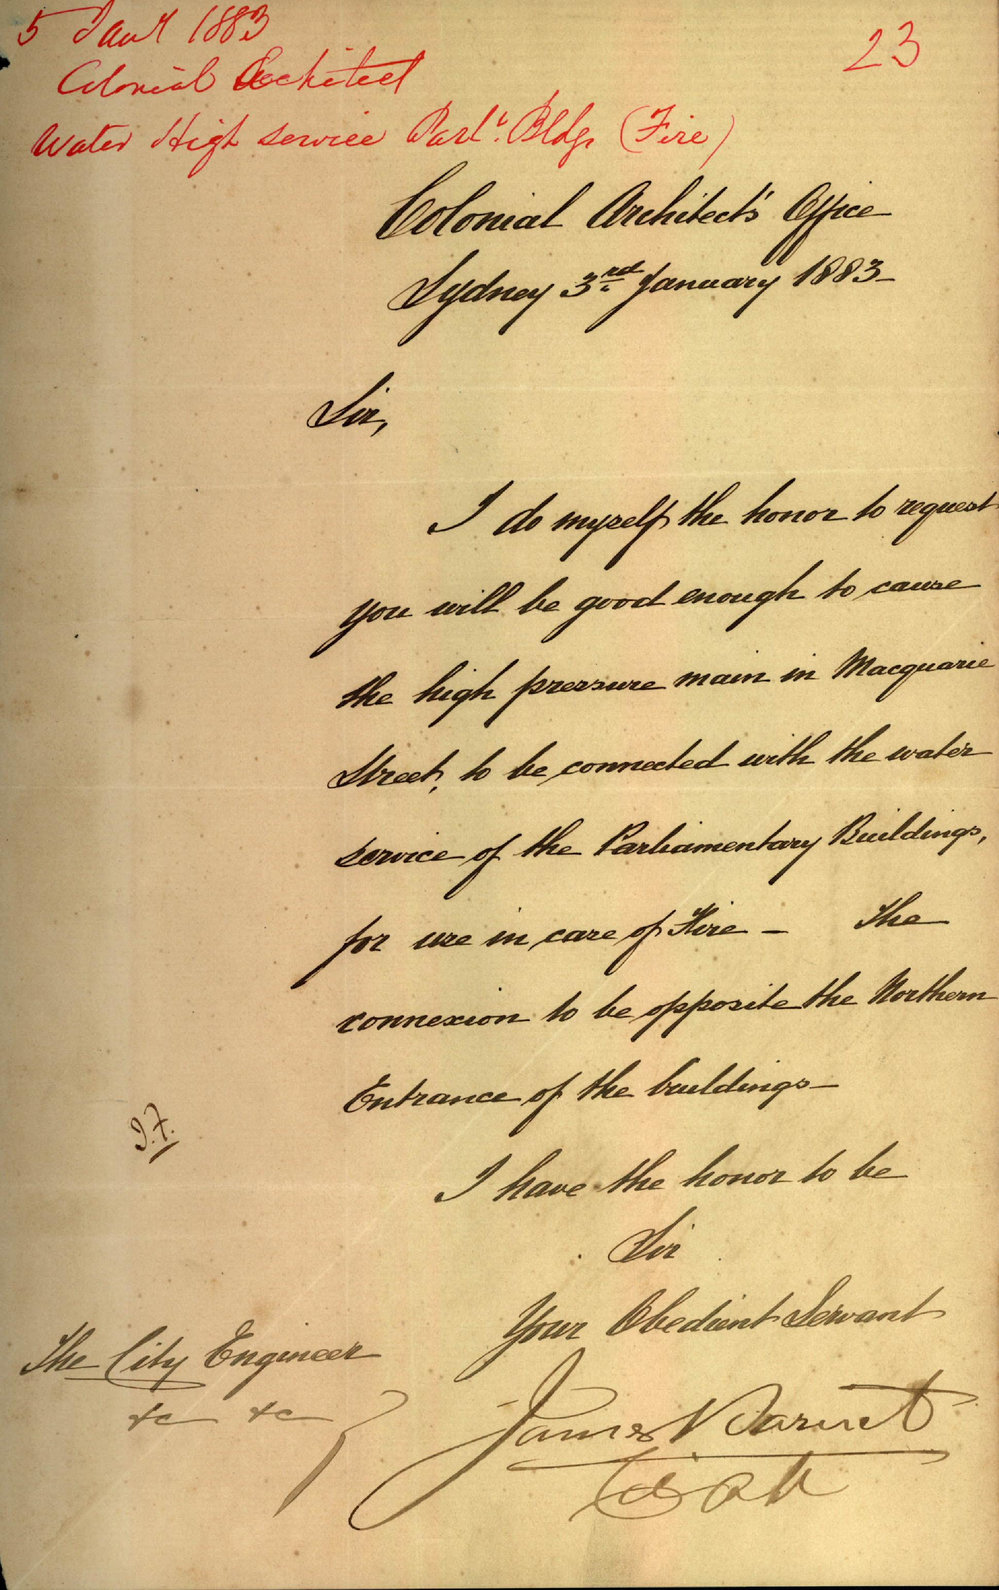 5 Jany 1883
23
Colonial Architect
Water High service Parlt. Bldgs (Fire)
Colonial Architect's Office
Sydney 3rd January 1883
Sir,
I do myself the honor to request
you will be good enough to cause
the high pressure main in Macquarie
Street, to be connected with the water
service of the Parliamentary Buildings,
for use in case of Fire – The
connexion to be opposite the Northern
Entrance of the buildings –
I have the honor to be
Sir
Your Obedient Servant
The City Engineer
&c &c
James Barnet